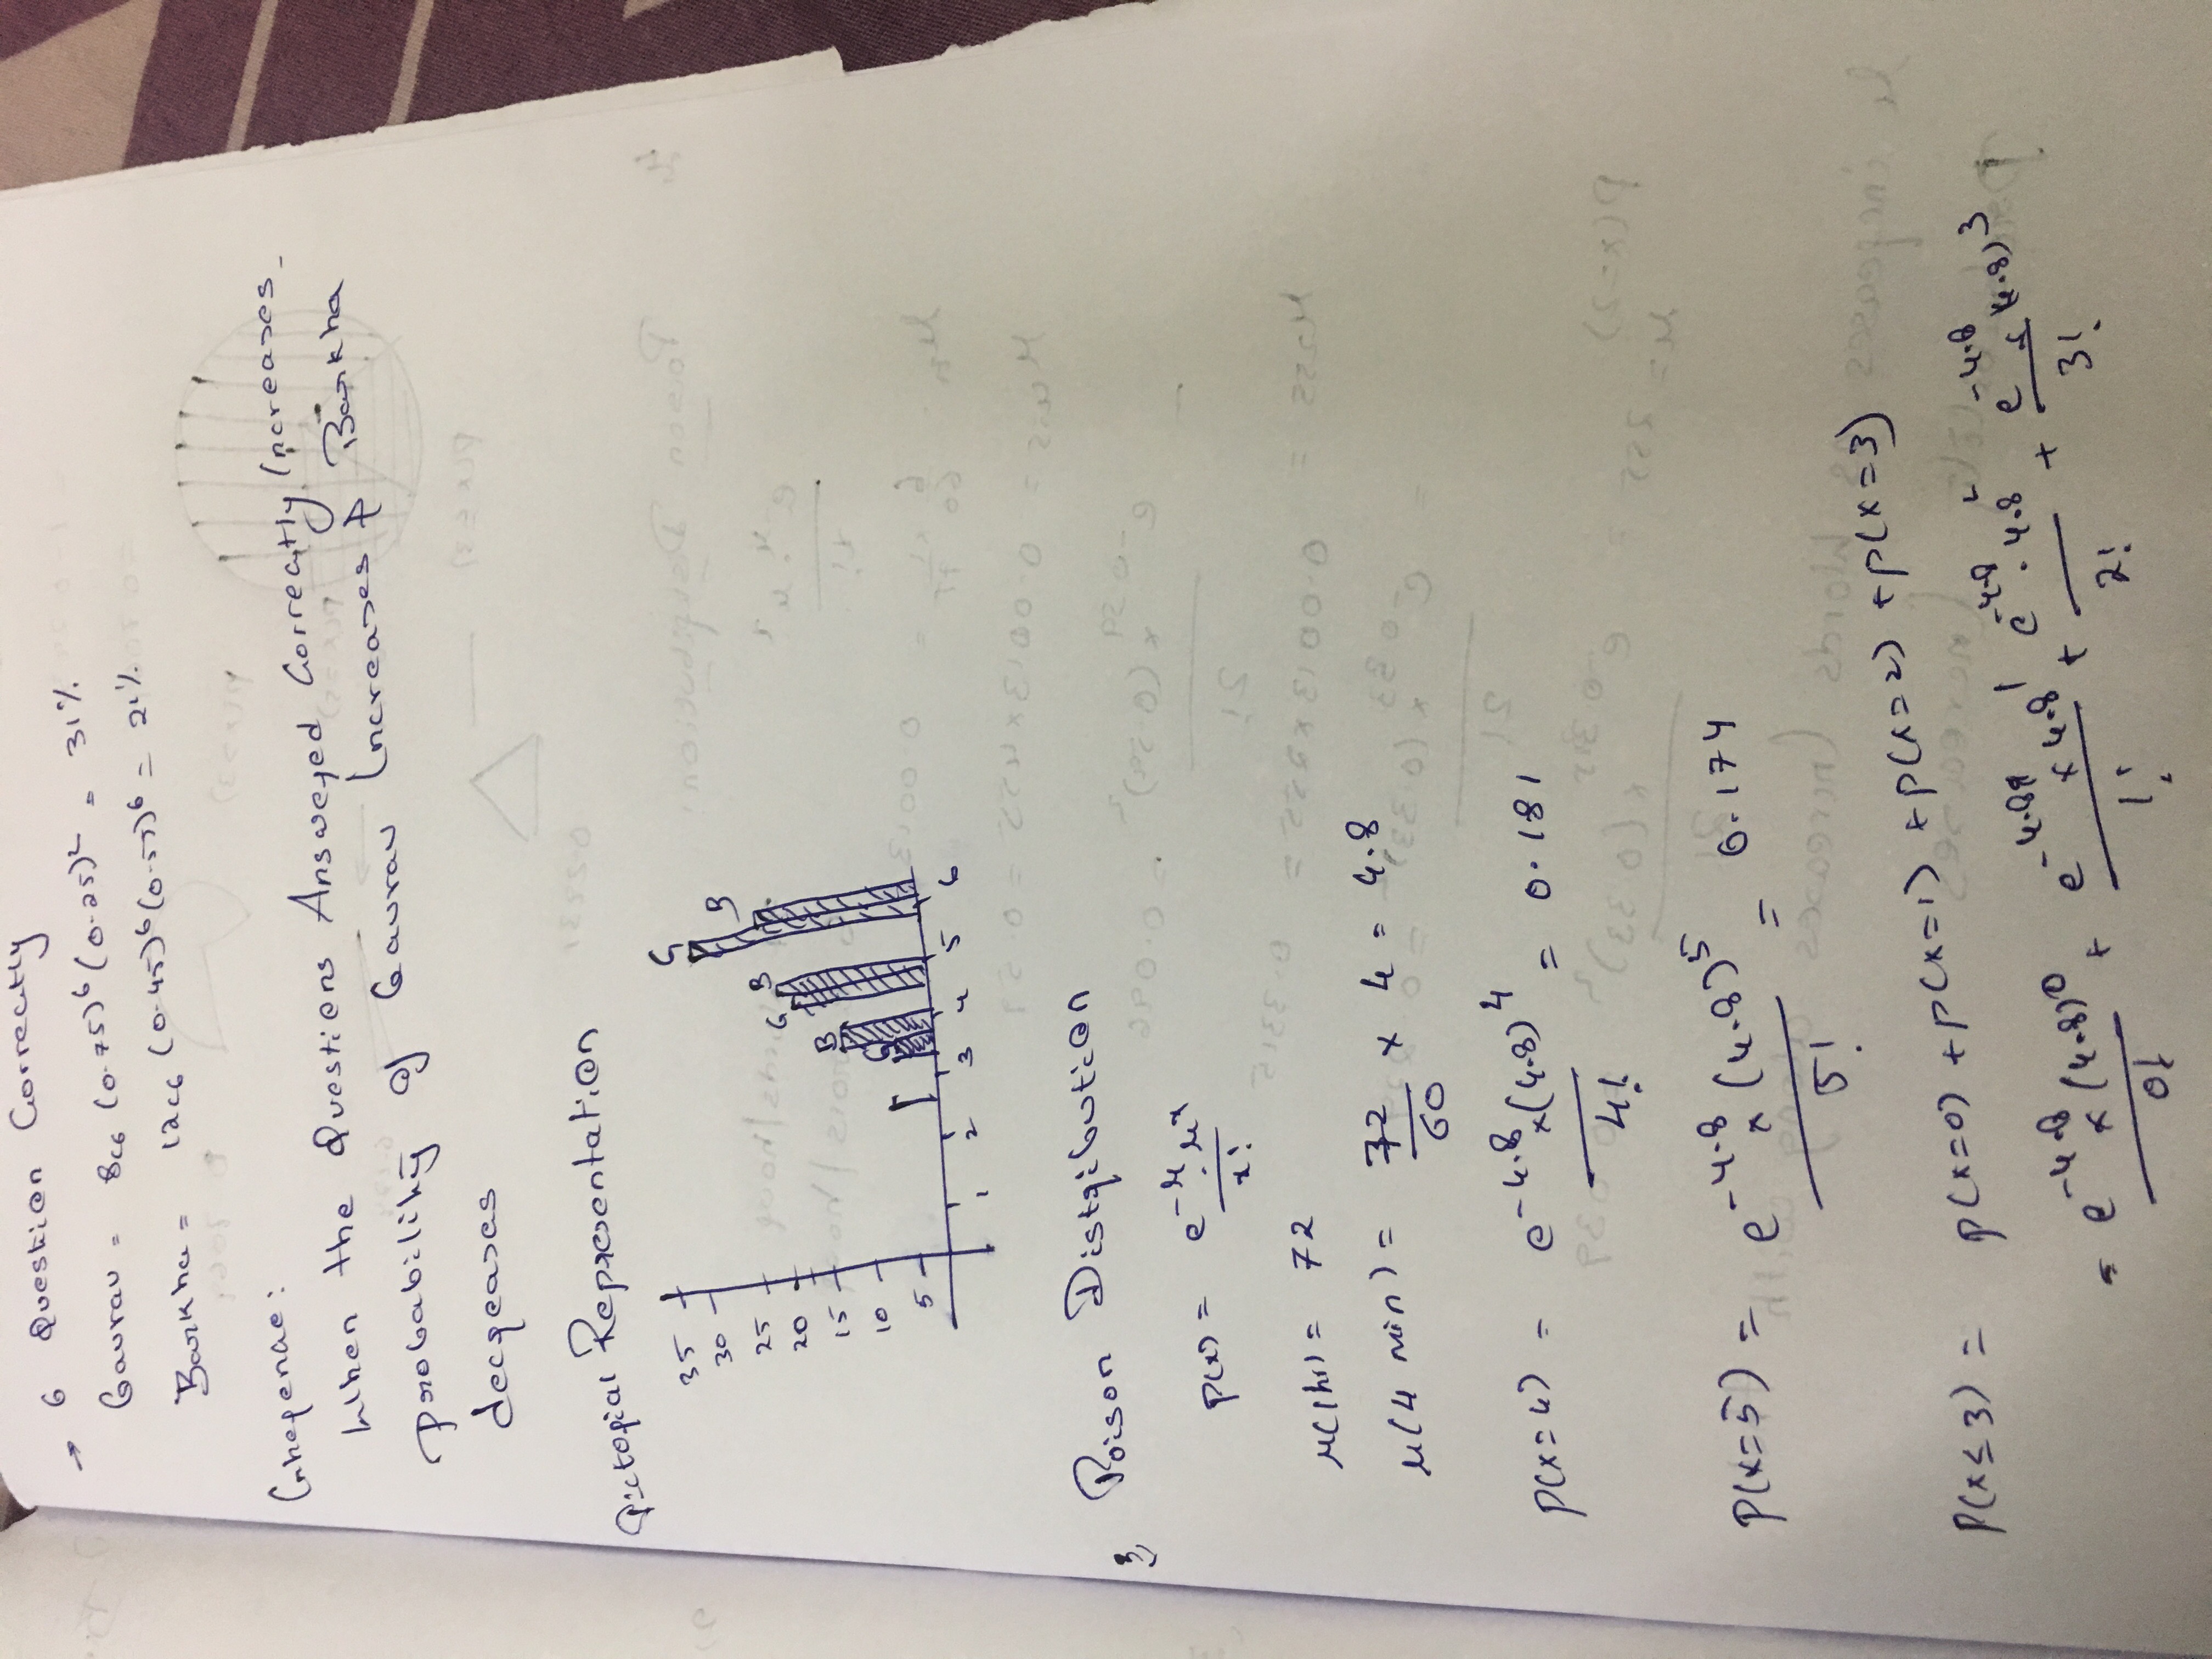 → 6 Question Correctly
Gaurav = 8c6 (0.75)^6 (0.25)^2 = 31%
Barkha = 12c6 (0.45)^6 (0.55)^6 = 21%
When the Questions Answered Correctly Increases
Probability of Gaurav Increases & Barkha
decreases
Pictorial Representation
35
30
25
20
15
10
5
G B
G B
G B
1 2 3 4 5 6
3, Poison Distribution
p(x) = e^-μ . μ^x / x!
μ(1hr) = 72
μ(4 min) = 72/60 x 4 = 4.8
P(x=4) = e^-4.8 x (4.8)^4 / 4! = 0.181
P(x=5) = e^-4.8 x (4.8)^5 / 5! = 0.174
P(x≤3) = p(x=0) + p(x=1) + p(x=2) + p(x=3)
= e^-4.8 x (4.8)^0 / 0! + e^-4.8 x 4.8^1 / 1! + e^-4.8 . 4.8^2 / 2! + e^-4.8 x (4.8)^3 / 3!